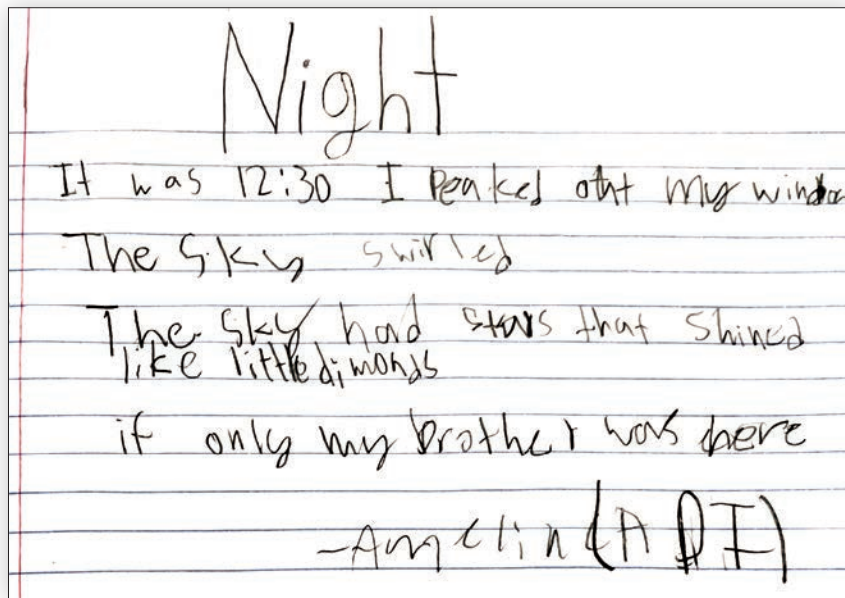 Night
It was 12:30 I Peaked out my window
The Sky swirled
The Sky had stars that shined
like little dimonds
if only my brother was here
-Amelin (ADI)